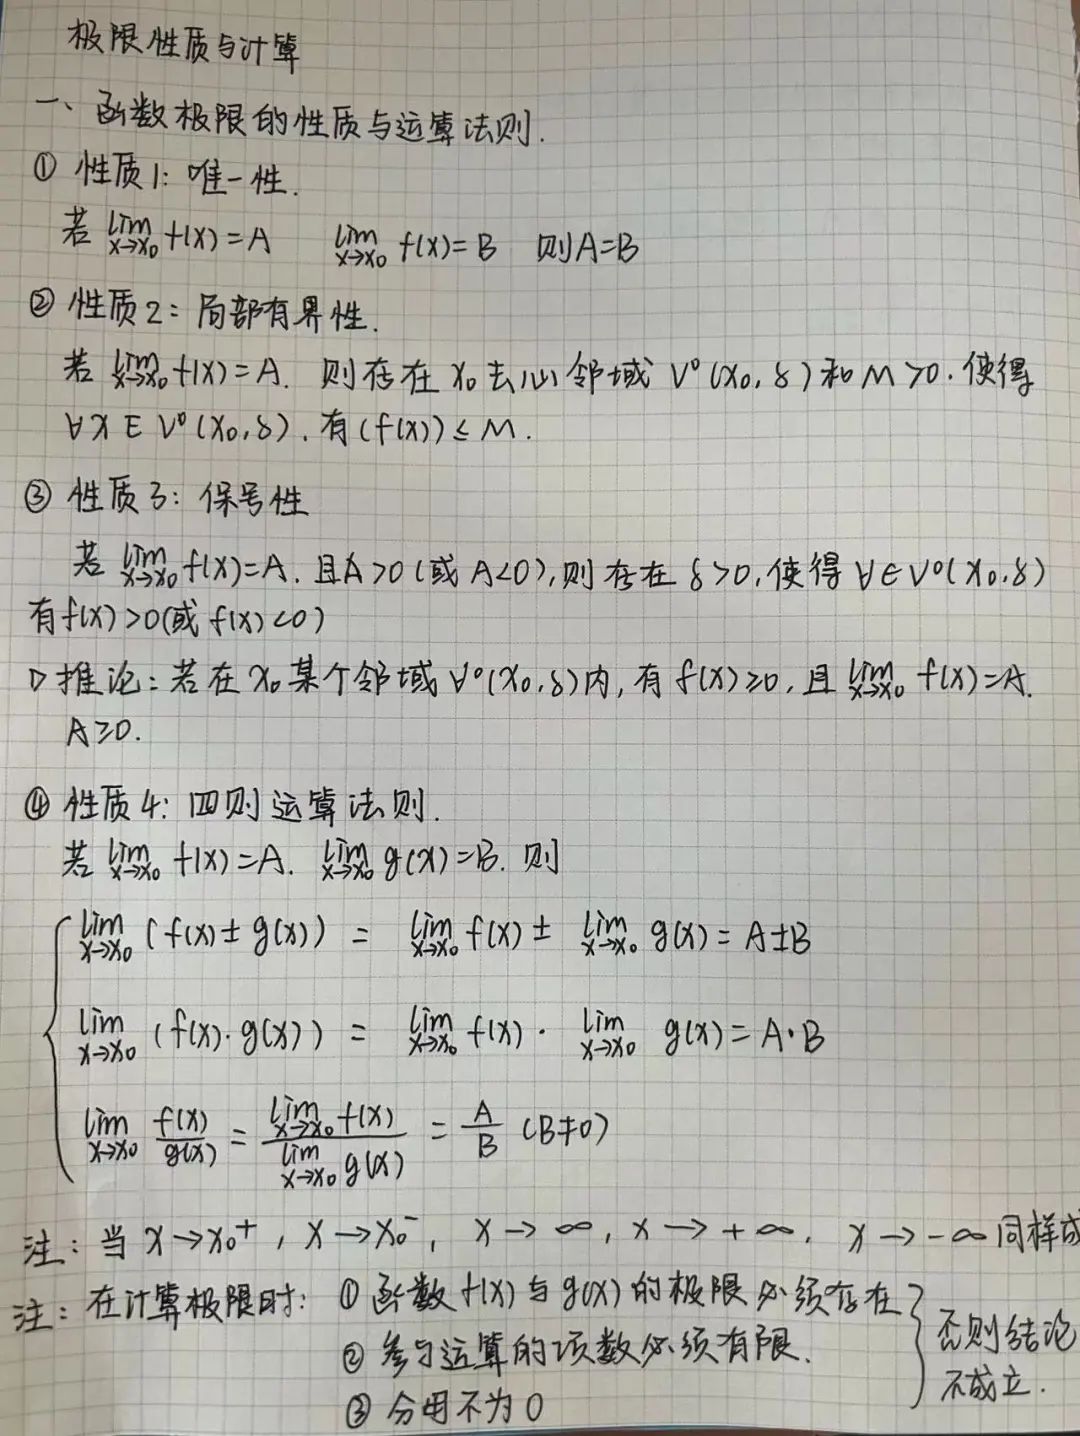 极限性质与计算
一、函数极限的性质与运算法则.
① 性质1: 唯一性.
若 lim x→x₀ f(x)=A lim x→x₀ f(x)=B 则A=B
② 性质2: 局部有界性.
若 lim x→x₀ f(x)=A. 则存在 x₀ 去心邻域 V⁰(x₀,δ) 和 M>0. 使得
∀x∈V⁰(x₀,δ). 有(f(x))≤M.
③ 性质3: 保号性
若 lim x→x₀ f(x)=A. 且A>0(或 A<0),则存在 δ>0,使得 ∀∈V⁰(x₀,δ)
有f(x)>0(或 f(x)<0)
▷推论: 若在 x₀ 某个邻域 ∀⁰(x₀,δ)内, 有 f(x)≥0, 且 lim x→x₀ f(x)=A.
A≥0.
④ 性质4: 四则运算法则.
若 lim x→x₀ f(x)=A. lim x→x₀ g(x)=B. 则
lim x→x₀ (f(x)±g(x)) = lim x→x₀ f(x) ± lim x→x₀ g(x)=A±B
lim x→x₀ (f(x)·g(x)) = lim x→x₀ f(x)· lim x→x₀ g(x)=A·B
lim x→x₀ f(x)/g(x) = lim x→x₀ f(x) / lim x→x₀ g(x) = A/B (B≠0)
注: 当 x→x₀⁺, x→x₀⁻, x→∞, x→+∞, x→-∞ 同样成
注: 在计算极限时: ① 函数 f(x) 与 g(x) 的极限必须存在
② 参与运算的项数必须有限.
③ 分母不为0
否则结论
不成立.